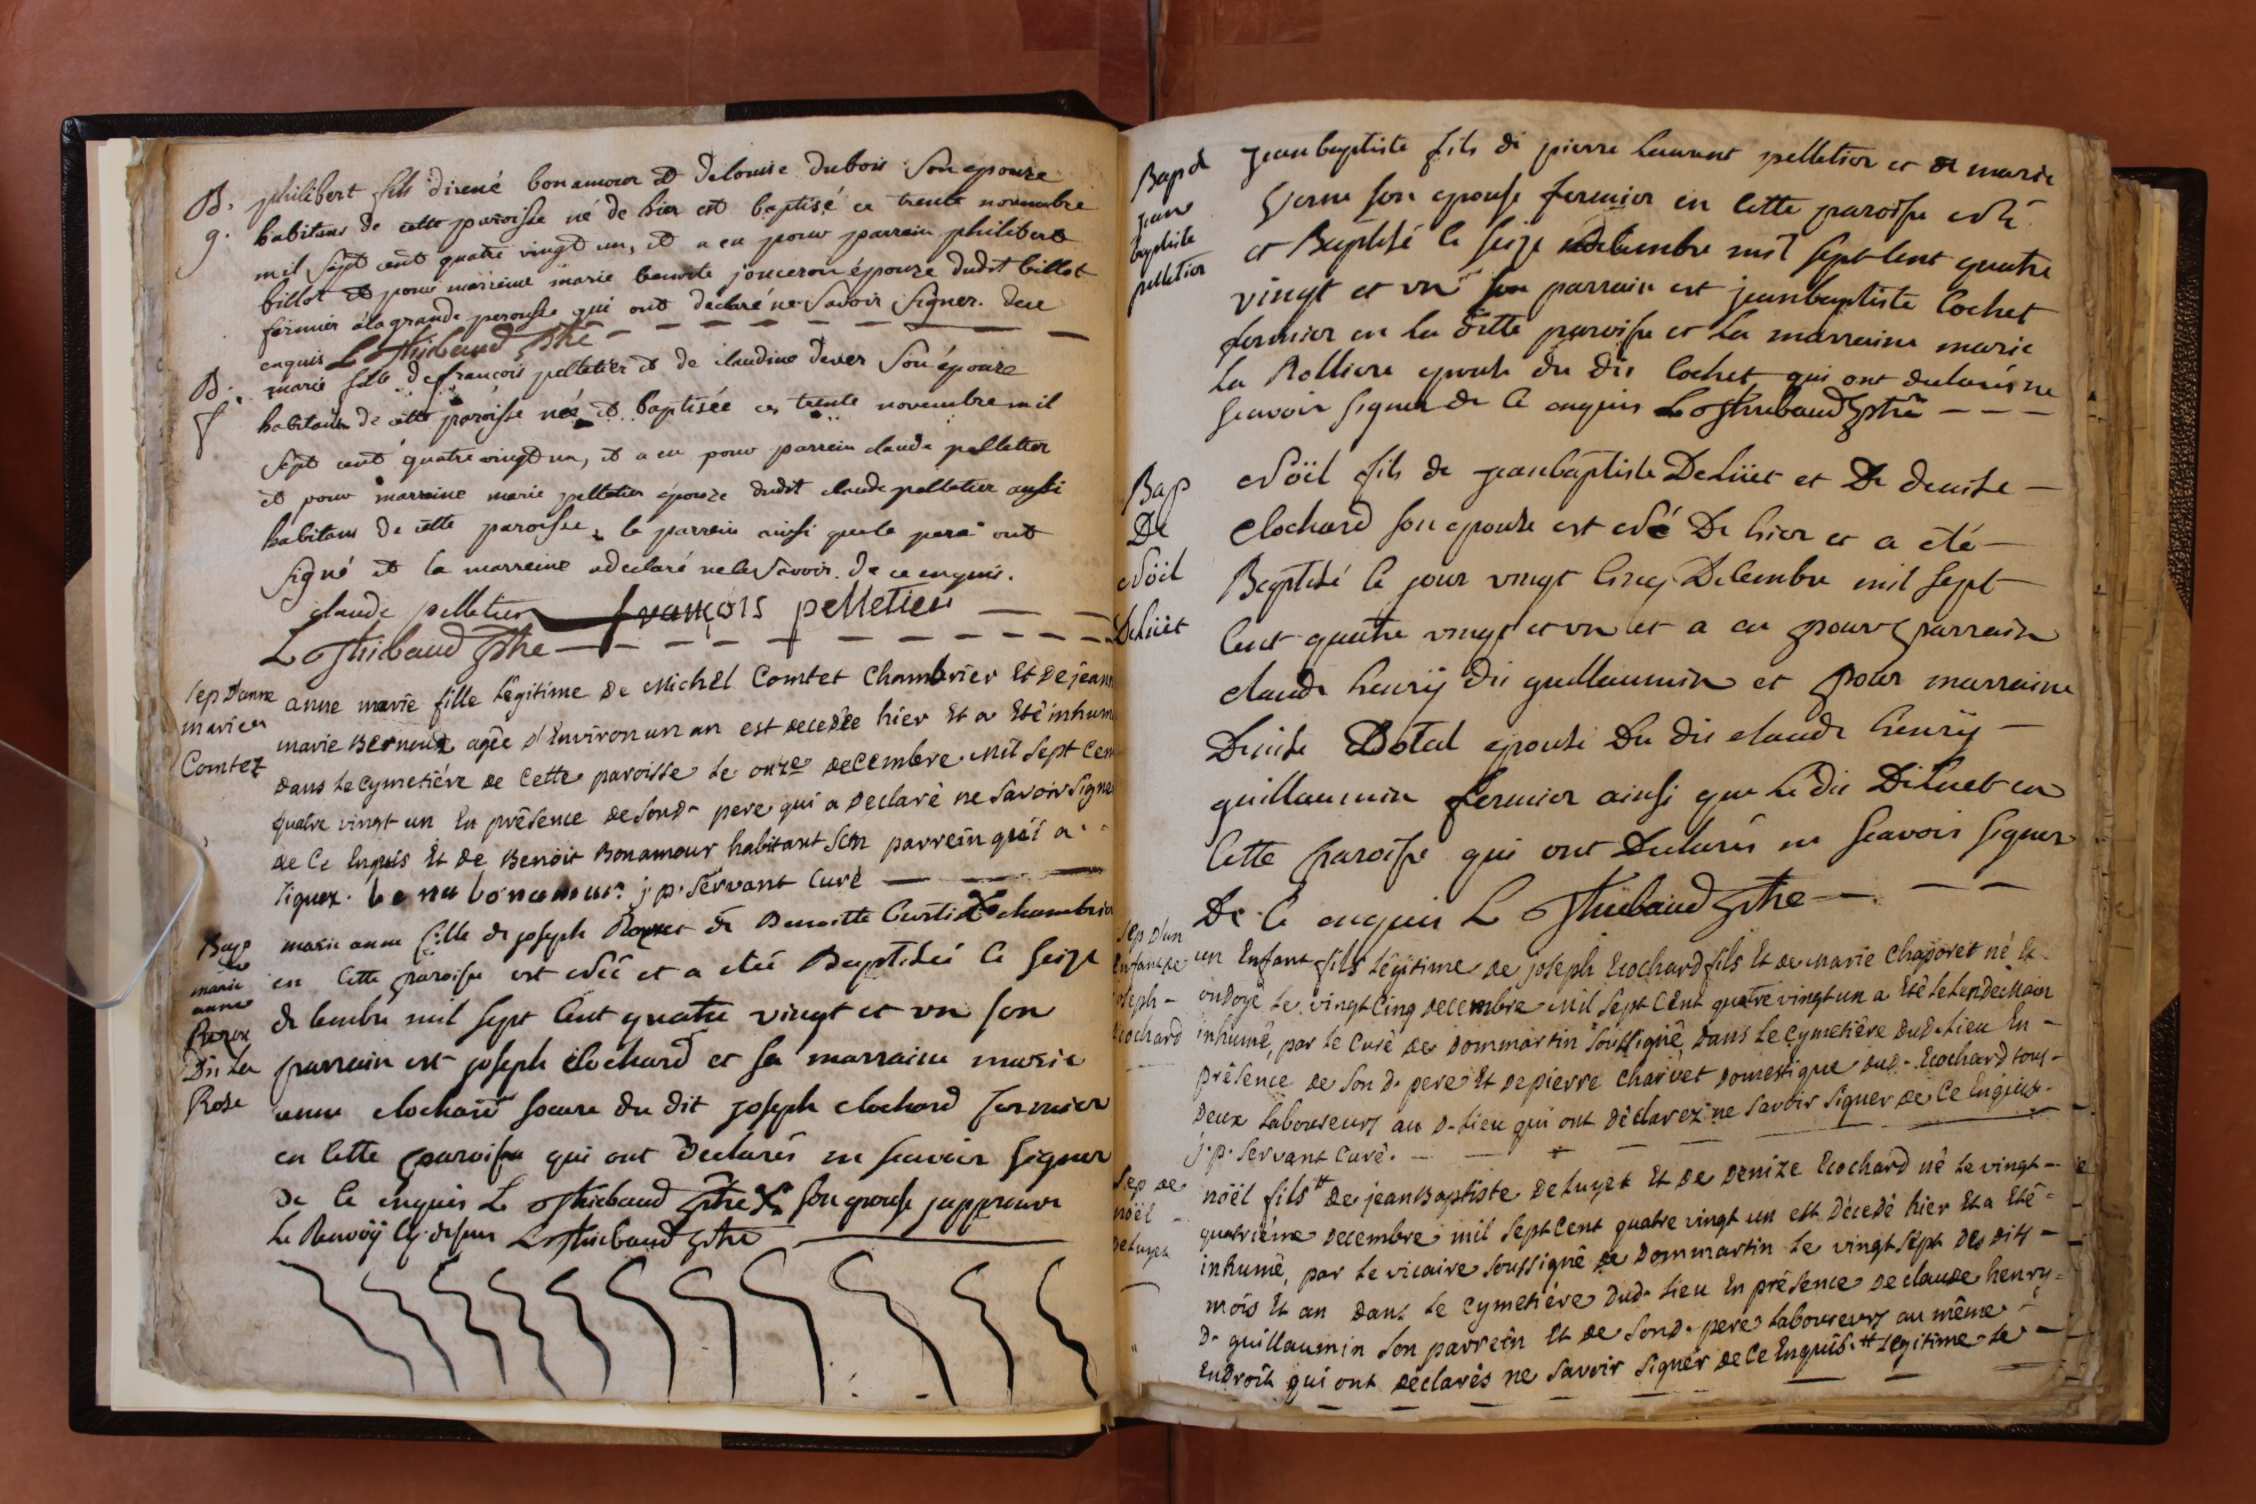 B. philibert fils di rené bonamour et de louise dubois son epouze
g. habitans de cette paroisse né de hier et baptisé ce trente novembre
mil sept cent quatre vingt un, et a eu pour parrain philibert
billot et pour marreine marie benoite jonceron épouze dudit billot
fermier à la grande perousse qui ont declaré ne savoir signer. de ce
enquis L Thiebaud ptre
B. marie fille de françois pelletier et de claudine dever son épouze
f habitans de cette paroisse née et baptisée ce trente novembre mil
sept cent quatre vingt un, et a eu pour parrein claude pelletier
et pour marreine marie pelletier épouze dudit claude pelletier aussi
habitans de cette paroisse, le parrein ainsi que le pere ont
signé et la marreine a declaré ne le savoir. de ce enquis.
claude pelletier françois pelletier
L Thiebaud ptre
sep d'anne
marie
Comtet
anne marie fille légitime de Michel Comtet Chambrier Et de jeanne
marie Berneux agée d'Environ un an est decedée hier Et a Eté inhum
dans le cymetiére de cette paroisse le onze decembre Mil sept cen
quatre vingt un En présence de son d. pere qui a declaré ne savoir signe
de ce Enquis Et de Benoit Bonamour habitant son parrein qui a
signez. benu bonamour. j. p. servant Curé
Bap
marie
anne
Dit La
Rose
marie anne fille de joseph et Benoitte Curtil chambrier
en cette paroisse est née et a eté Baptisée le seize
decembre mil sept cent quatre vingt et un son
parrain est joseph clochard et sa marraine marie
anne clochard soeure du dit joseph clochard fermier
en cette paroisse qui ont declarés ne scavoir signer
de ce enquis L Thiebaud ptre X son epouse japprouve
le Renvoÿ cy dessus L Thiebaud ptre
Bap d
jean
baptiste
pelletier
jean baptiste fils de pierre laurent pelletier et de marie
verne son epouse fermier en cette paroisse est né
et Baptisé le seize decembre mil sept cent quatre
vingt et un son parrain est jean baptiste Cochet
fermier en la ditte paroisse et la marraine marie
la Rolliere epouse du dit Cochet qui ont declarés ne
scavoir signer de ce enquis L Thiebaud ptre
Bap
De
Noël
Deluet
Noël fils de jean baptiste Deluet et De denise
clochard son epouse est né De hier et a eté
Baptisé le jour vingt cinq Decembre mil sept
cent quatre vingt et un et a eu pour parrain
claude henrÿ dit guillaumin et pour marraine
Denise Botal epouse Du dit claude henrÿ
guillaumin fermier ainsi que le dit Deluet en
cette paroisse qui ont Declarés ne scavoir signer
De ce enquis L Thiebaud ptre
sep d'un
Enfant de
joseph
Ecochard
un Enfant fils légitime de joseph Ecochard fils Et de marie chaporet né Et
ondoyé le vingt cinq decembre Mil sept cent quatre vingt un a Eté le lendemain
inhumé, par le curé de dommartin soussigné, dans le cymetiére dud. lieu En
présence de son d. pere Et de pierre charvet domestique dud. Ecochard tous
deux laboureurs au d. lieu qui ont déclarez ne savoir signer de ce Enquis.
j. p. servant Curé.
sep de
noël
deluyet
noël fils # de jean Baptiste deluyet Et de denize Ecochard né le vingt
quatriéme decembre mil sept cent quatre vingt un est décedé hier Et a Eté
inhumé, par le vicaire soussigné de dommartin le vingt sept des dits
mois Et an dans le cymetiére dud. lieu En présence de claude henry
d. guillaumin son parrein Et de son d. pere laboureurs au même
Endroit qui ont déclarés ne savoir signer de ce Enquis. # légitime de